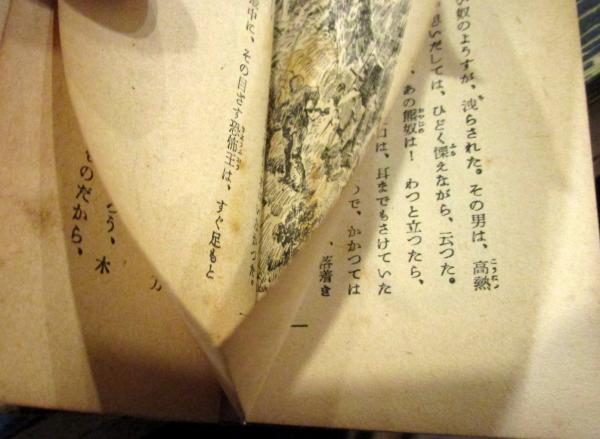 奴のようすが、洩らされた。その男は、高熱
だしては、ひどく慄えながら、云つた。
あの熊奴は！　わつと立つたら、
口は、耳までもさけていた
で、かかつては
落着き
一
中に、その目ざす恐怖王は、すぐ足もと
こう、木
ものだから、